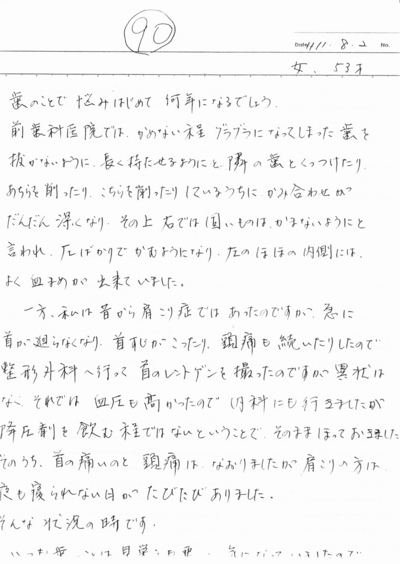 90
Date H11.8.2 No.
女、53才
歯のことで悩みはじめて何年になるでしょう。
前歯科医院では、かめない程ブラブラになってしまった歯を
抜かないように、長く持たせるようにと、隣の歯とくっつけたり、
あちらを削ったり、こちらを削ったりしているうちにかみ合わせが
だんだん深くなり、その上右では固いものは、かまないようにと
言われ、左ばかりでかむようになり、左のほほの内側には、
よく血まめが出来ていました。
一方、私は昔から肩こり症ではあったのですが、急に
首が廻らなくなり、首すじがこったり、頭痛も続いたりしたので
整形外科へ行って首のレントゲンを撮ったのですが異状は
なく、それでは血圧も高かったので内科にも行きましたが
降圧剤を飲む程ではないということで、そのままほっておきました
そのうち、首の痛いのと頭痛は、なおりましたが肩こりの方は、
夜も寝られない日がたびたびありました。
そんな状況の時です。